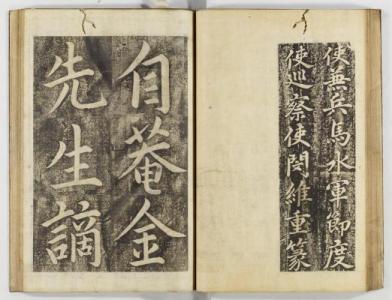 使兼兵馬水軍節度
使巡察使閔維重篆
自菴金
先生謫